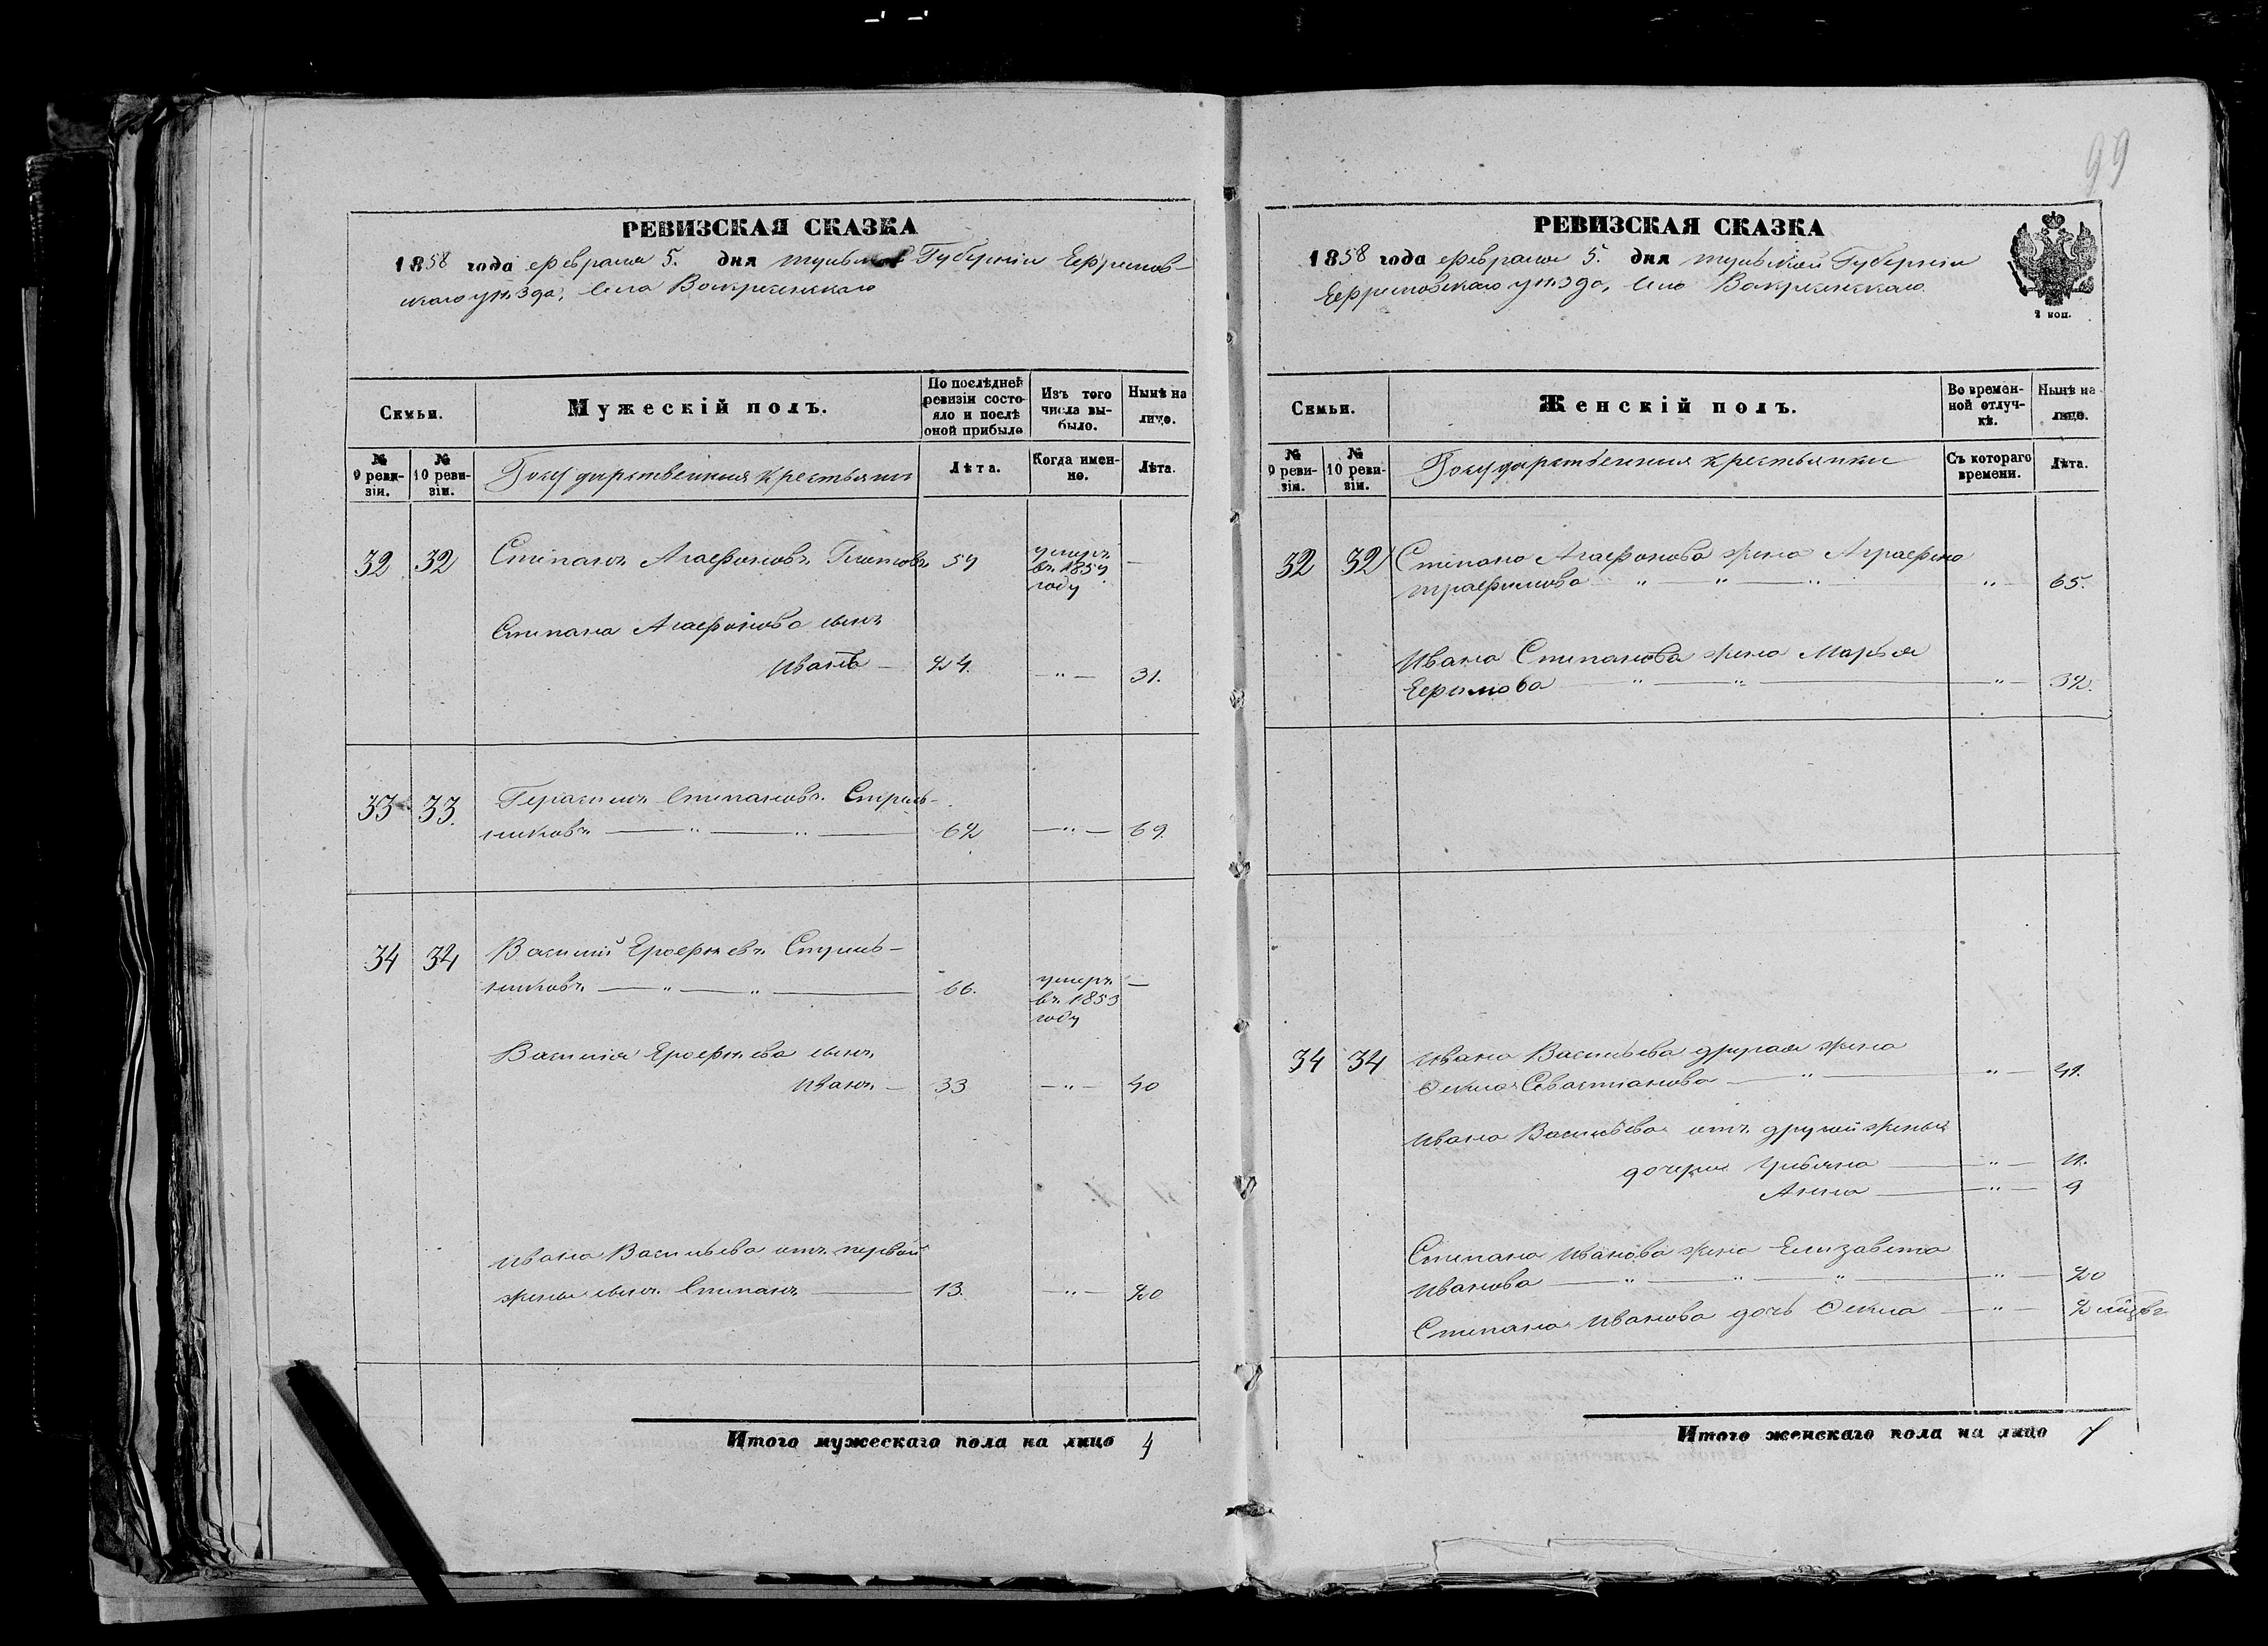 99
РЕВИЗСКАЯ СКАЗКА
1858 года февраля 5. дня тульской Губерніи Ефремов-
скаго уѣзда, села Воскресенскаго
Семьи.
Мужескій полъ.
По послѣдней ревизіи состо-
яло и послѣ
оной прибыло
Изъ того
числа вы-
было.
Нынѣ на
лицо.
№
9 реви-
зіи.
№
10 реви-
зіи.
Государственныя крестьяни
Лѣта.
Когда имен-
но.
Лѣта.
32 32 Степанъ Агафоновъ 59 умеръ —
въ 1854
году
Степана Агафонова сынъ
Иванъ — 24. — " — 31.
33 33. Герасимъ Степановъ Стрель-
никовъ — " — " — 62 — " — 69.
34 34 Василий Ерофѣевъ Стрель-
никовъ — " — " — 66. умеръ —
въ 1853
году
Василия Ерофѣева сынъ
Иванъ — 33 — " — 40
Ивана Васильева отъ первой
жены сынъ Степанъ — 13. — " — 20
Итого мужескаго пола на лицо 4
РЕВИЗСКАЯ СКАЗКА
1858 года февраля 5. дня тульской Губерніи
Ефремовскаго уѣзда, села Воскресенскаго
2 коп.
Семьи.
Женскій полъ.
Во времен-
ной отлуч-
кѣ.
Нынѣ на
лицо.
№
9 реви-
зіи.
№
10 реви-
зіи.
Государственныя крестьянки
Съ котораго
времени.
Лѣта.
32 32 Степана Агафонова жена Аграфена
трафимова — " — " — " — " — 65.
Ивана Степанова жена Марья
Ефимова — " — " — " — 32.
34 34 Ивана Васильева другая жена
Ѳекла Севастианова — " — " — 41.
Ивана Васильева отъ другой жены
дочери Ульяна — " — 11.
Анна — " — 9
Степана Иванова жена Елизавета
Иванова — " — " — " — " — 20
Степана Иванова дочь Ѳекла — " — 2
Итого женскаго пола на лицо 7